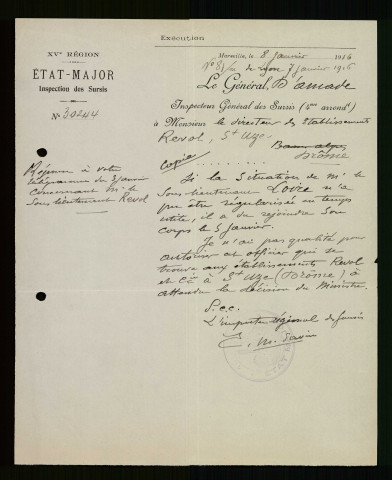 Exécution
XVᵉ RÉGION
ÉTAT-MAJOR
Inspection des Sursis
N° 30244
Réponse à votre
télégramme du 3 janvier
concernant Mr le
Sous lieutenant Revol
Marseille, le 8 Janvier 1916
de Lyon 7 janvier 1916
Le Général, D'amade
Inspecteur Général des Sursis (4me arrondt)
à Monsieur le directeur des Etablissements
Revol, St Uze.
Drôme
Copie
Si la Situation de Mr le
Sous lieutenant n'a
pu être régularisée en temps
utile, il a dû rejoindre son
corps le 5 janvier.
Je n'ai pas qualité pour
autoriser cet officier qui se
trouve aux établissements Revol
et Cie à St Uze (Drôme) à
attendre la décision du Ministre.
P.c.c.
L'inspecteur régional des Sursis